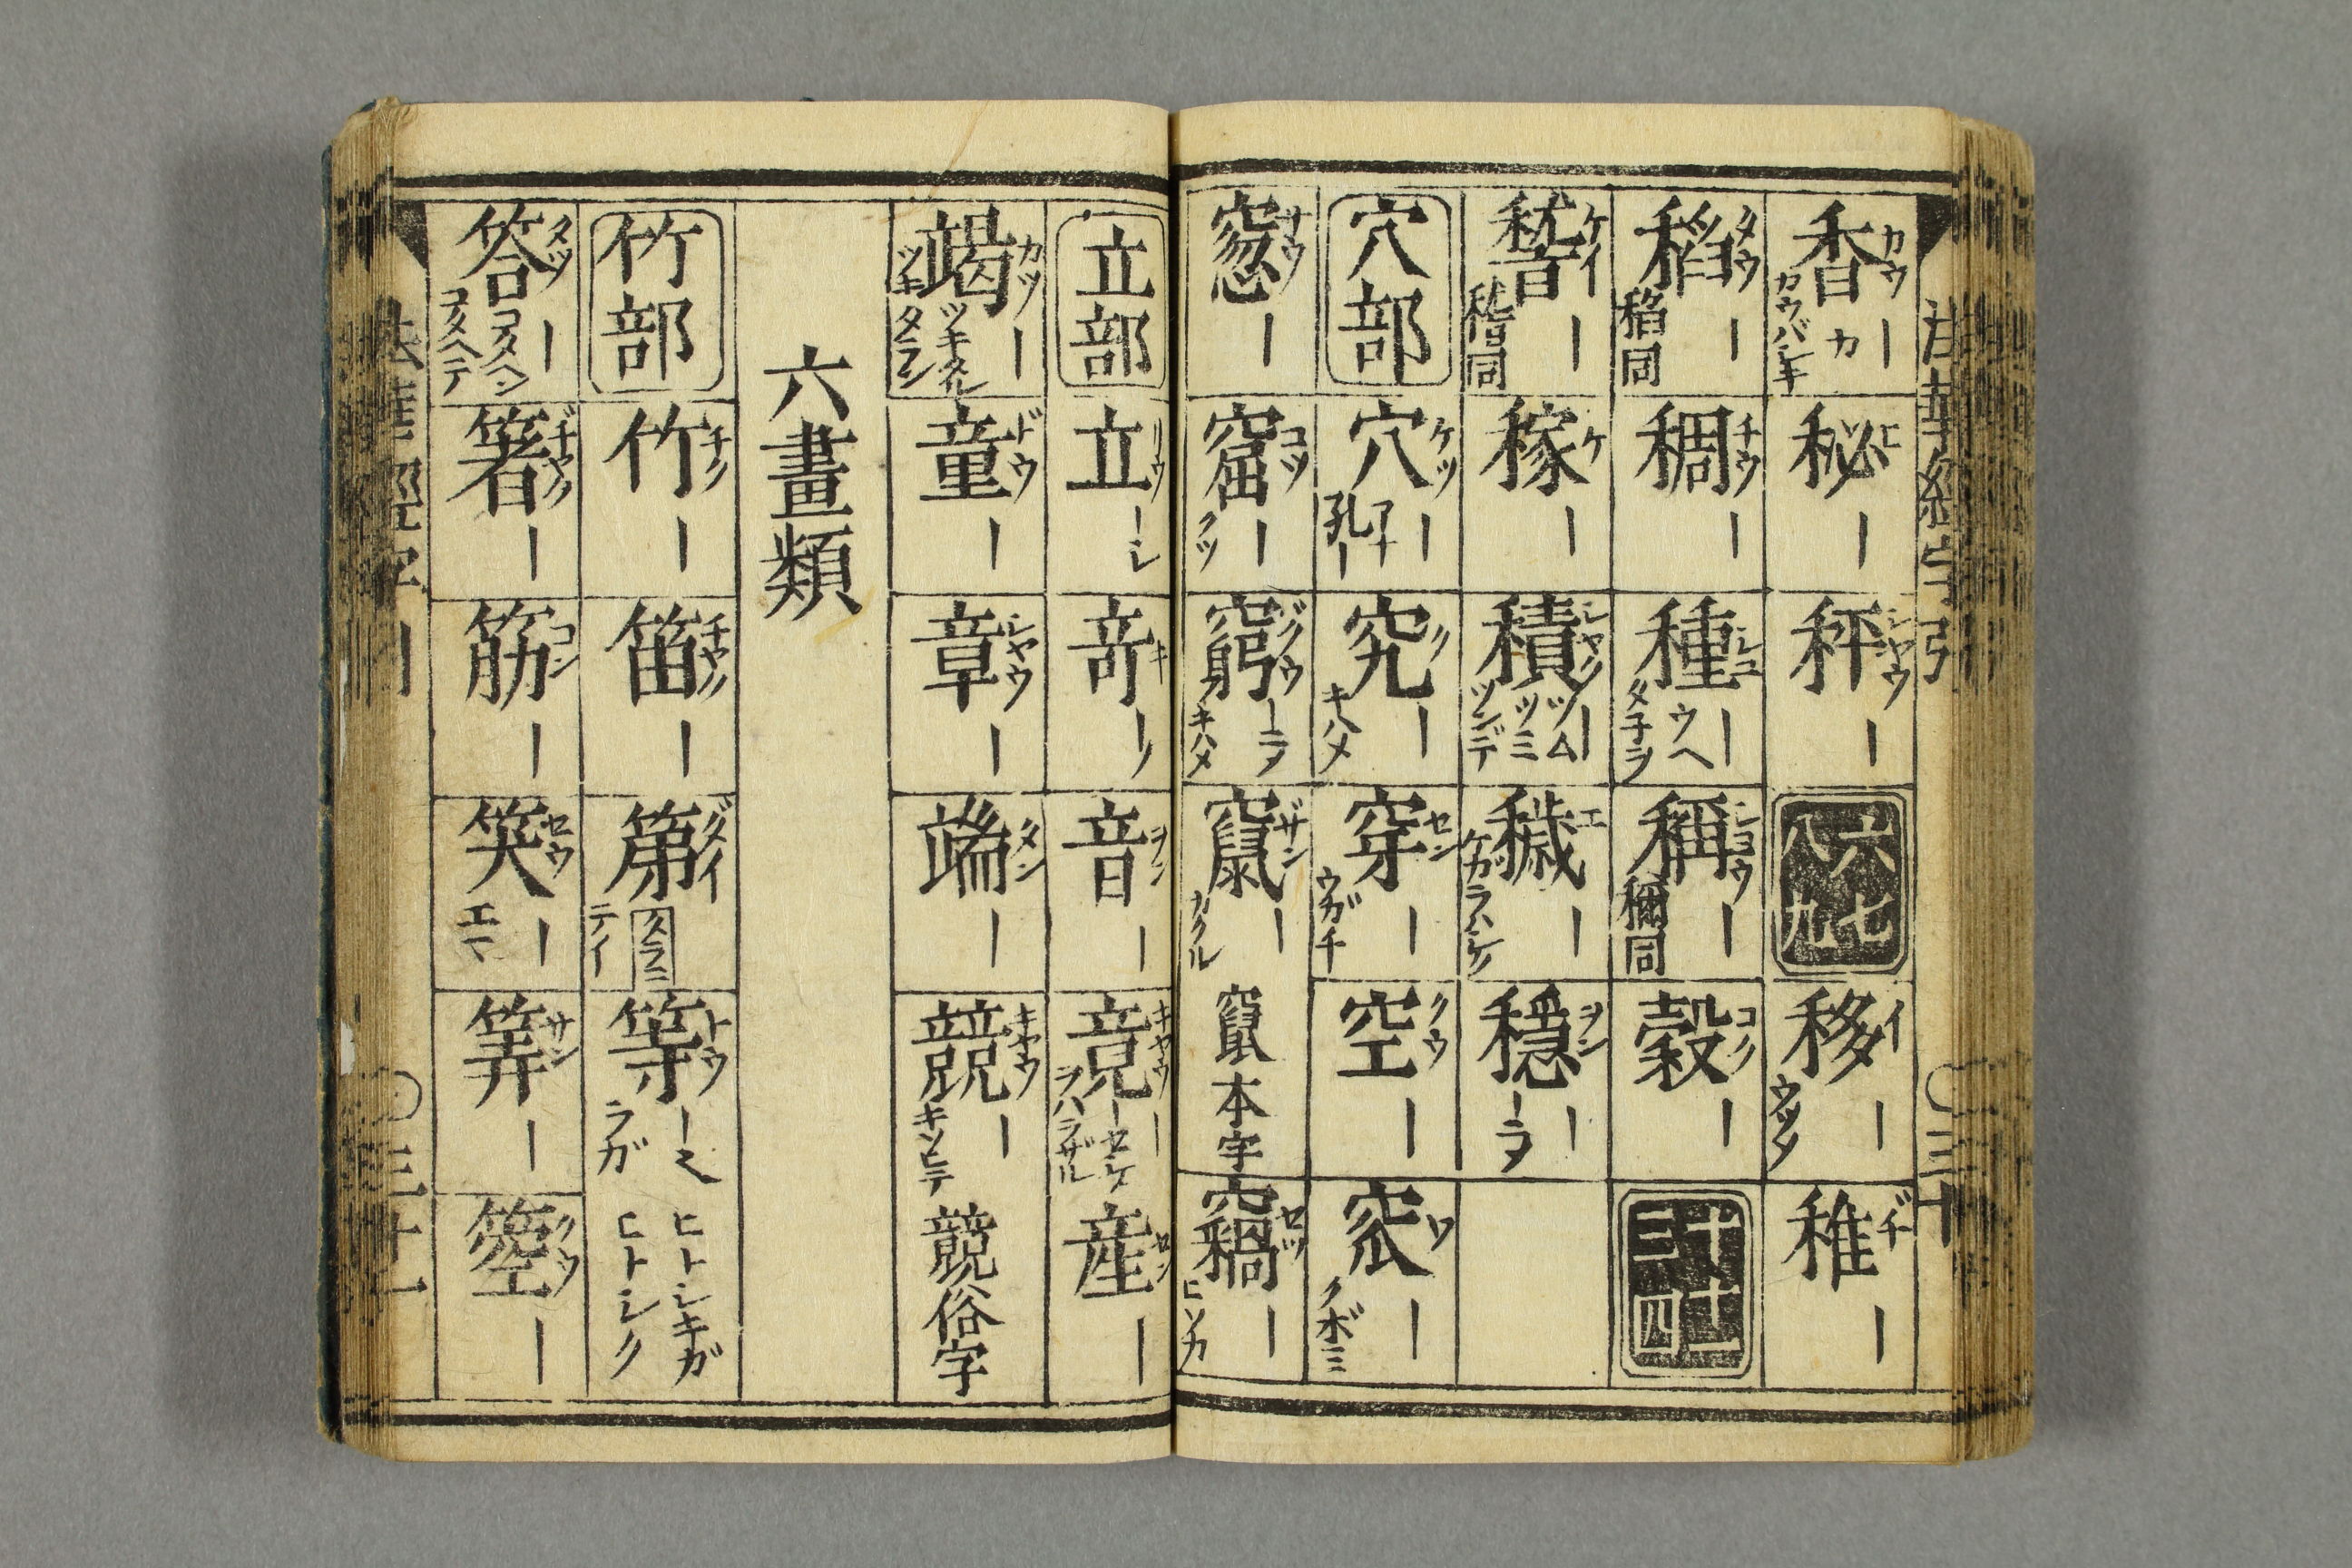 香 カウ ー カ カウバシキ
秘 ヒ ー
秤 シヤウ ー
六七八九
移 イ ー ウツタ
稚 ヂチ ー
稻 タウ ー 稻同
稠 チウ ー
種 シユ ー ウヘ タネヲ
稱 シヨウ ー 稱同
穀 コク ー
十十一二三四
嵆 ケイ ー 嵇同
稼 ケ ー
積 シヤク ー ツム ツミ ツンデ
穢 エ ー ケカラハシク
穩 ヲン ー ーラ
穴部
穴 ケツ ー アナ 孔ー
究 ク ー キハメ
穿 セン ー ウガチ
空 クウ ー
窊 ワ ー クボミ
窓 サウ ー
窟 コツ ー クツ
窮 グウ ーラ キハメ
竄 ザン ー カクル 竄本字
竊 セツ ー ヒソカ
立部
立 リウ ーシ
竒 キ ーリ
音 ヲン ー
竟 キヤウ ー ーセケ ヲハラザル
産 セン ー
竭 カツ ー ツキタル ツキタラン
童 ドウ ー
章 シヤウ ー
端 タン ー
競 キヤウ ー キソヒテ 競俗字
六畫類
竹部
竹 チク ー
笛 チヤク ー
第 ダイ テイ
等 トウ ー ラガ ヒトシキガ ヒトシク
答 タツ ー コタヘン コタヘテ
箸 ヂヤク ー
筋 コン ー
笑 セウ ー エマ
筭 サン ー
箜 クウ ー
法華經字引 〇三十